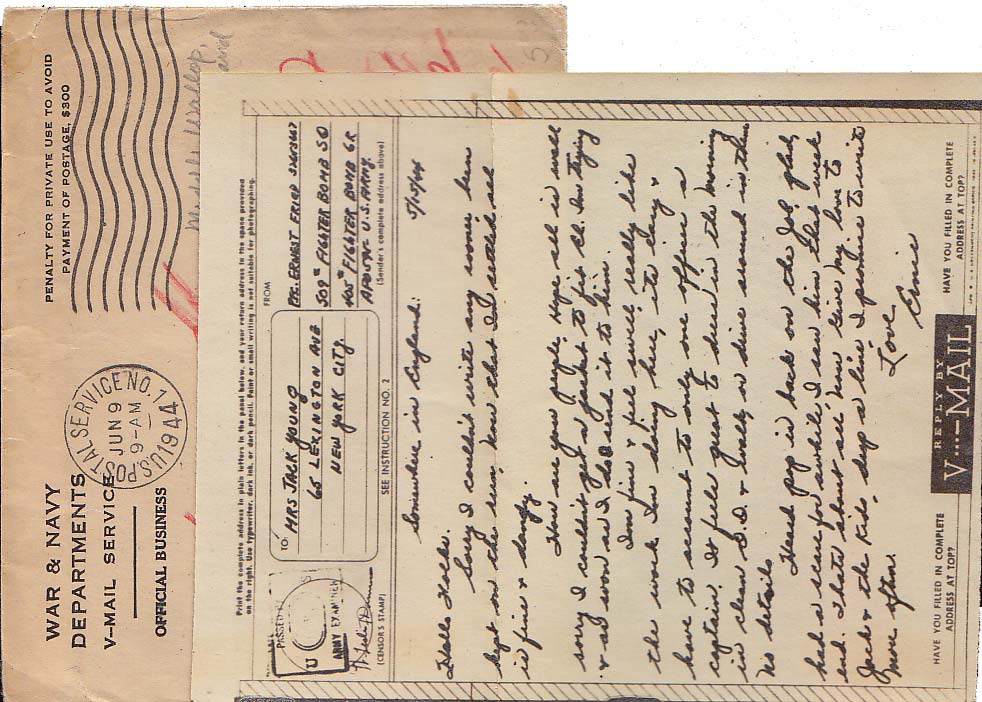 WAR & NAVY
DEPARTMENTS
V-MAIL SERVICE
OFFICIAL BUSINESS
U.S. POSTAL SERVICE NO. 1
JUN 9
9-AM
1944
PENALTY FOR PRIVATE USE TO AVOID
PAYMENT OF POSTAGE, $300
Print the complete address in plain letters in the panel below, and your return address in the space provided
on the right. Use typewriter, dark ink, or dark pencil. Faint or small writing is not suitable for photographing.
PASSED BY
U
ARMY EXAMINER
(CENSOR'S STAMP)
TO
MRS JACK YOUNG
65 LEXINGTON AVE
NEW YORK CITY.
SEE INSTRUCTION NO. 2
FROM
PFC. ERNEST FRIED
509th FIGHTER BOMB SQ
405th FIGHTER BOMB GR
U.S. ARMY.
(Sender's complete address above)
Somewhere in England:
5/15/44
Hello Folks.
Sorry I couldn't write any sooner been
kept on the run, know that I'm settled all
is fine & dandy.
How are you people, Hope all is well
sorry I couldn't get a jacket to fit Al. Im trying
& as soon as I do send it to him.
Im fine & feel swell, really like
the work Im doing here, its dirty &
have to account to only one officer a
captain. It feels great to dress in the morning
in clean O.D. & walk, or dine around in them
No details
Heard pop is back on the Job, glad,
had a scare for awhile I saw him that week
end. Thats about all now Give my love to
Jack & the Kids, drop a line I promise to write
more often.
Love
Ernie
HAVE YOU FILLED IN COMPLETE
ADDRESS AT TOP?
REPLY BY
V···—MAIL
HAVE YOU FILLED IN COMPLETE
ADDRESS AT TOP?